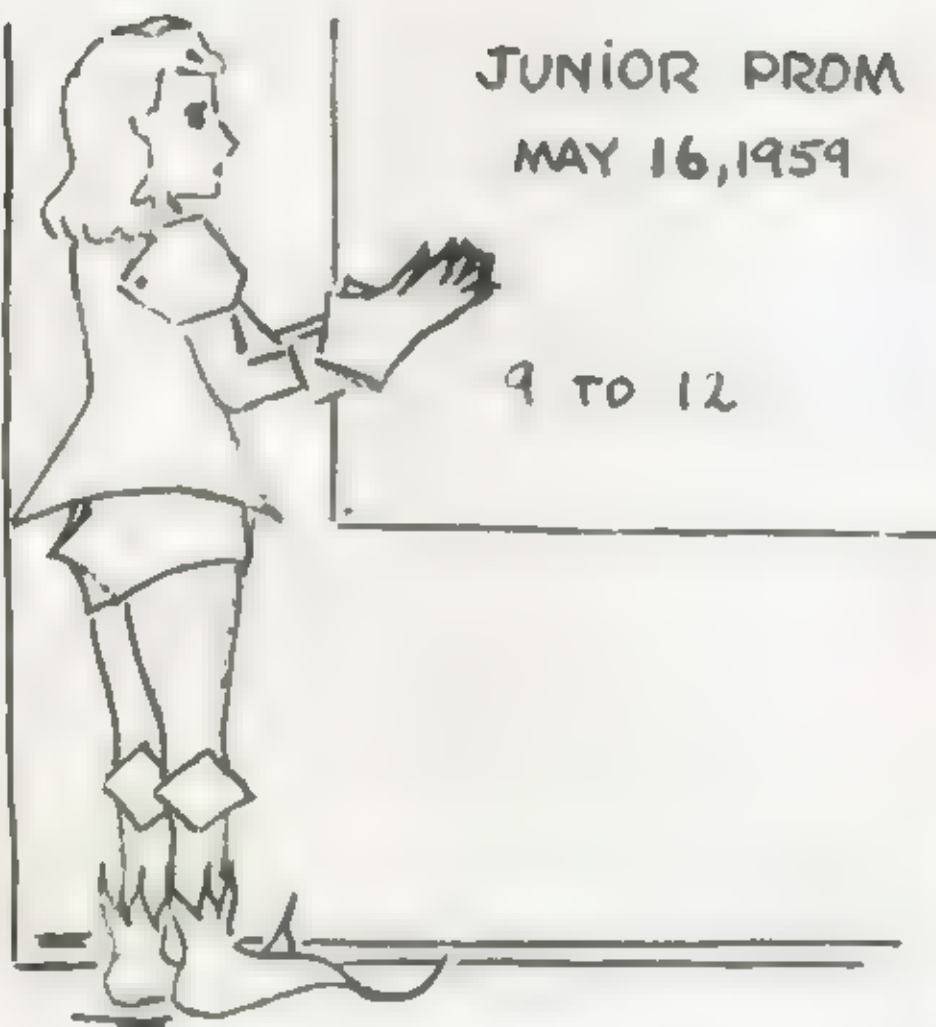 JUNiOR PROM
MAY 16,1959
9 TO 12